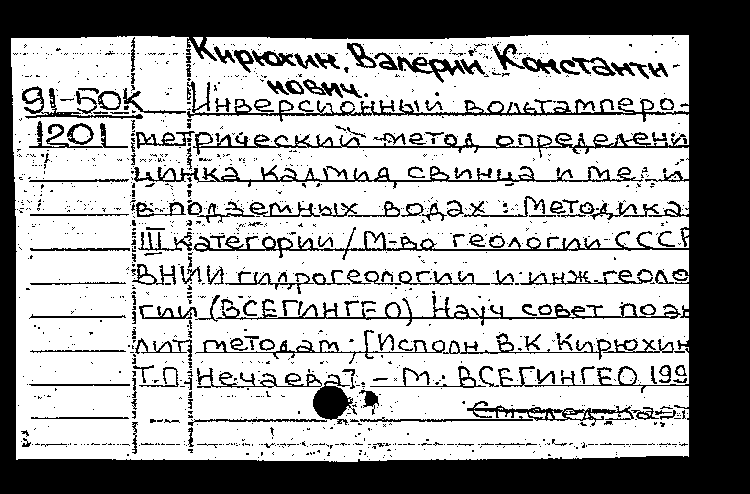 Кирюхин, Валерий Константи-
нович.
91-50К Инверсионный вольтамперо-
1201 метрический метод определени
цинка, кадмия, свинца и меди
в подземных водах : Методика
III категории / М-во геологии СССР
ВНИИ гидрогеологии и инж. геоло
гии (ВСЕГИНГЕО) Науч совет по ан
лит методам ; [Исполн. В.К. Кирюхин
Т.П. Нечаева]. – М.: ВСЕГИНГЕО, 199
См. след. карт